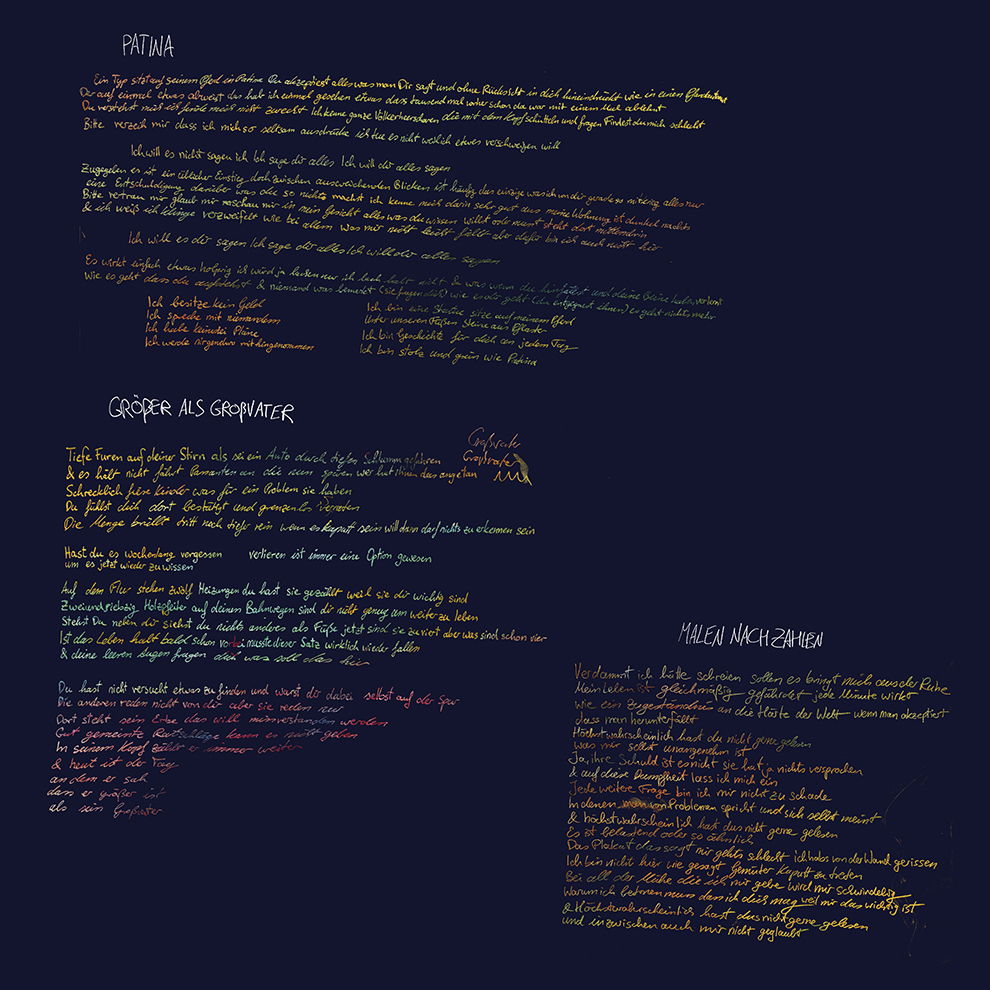 PATINA
Ein Typ sitzt auf seinem Pferd in Patina Du akzeptierst alles was man Dir sagt und ohne Rücksicht in dich hineindrückt wie in einen
Der auf einmal etwas abweist das hab ich einmal gesehen etwas dass tausend mal vorher schon da war mit einem Muh ablehnt
Du verstehst mich ich fühle mich nicht zweckt Ich kenne ganze Völkerheerscharen die mit dem Kopf schütteln und fragen Findest du mich schlecht
Bitte verzeih mir dass ich mich so seltsam ausdrücke ich tue es nicht weil ich etwas verschweigen will
Ich will es nicht sagen ich Ich sage dir alles Ich will dir alles sagen
Zugegeben er ist ein üblicher Einstieg doch zwischen ausweichenden Blicken ist häufig das einzige was ich von dir gerade so mitkrieg alles nur
eine Entschuldigung darüber was du so nichts machst ich kenne mich darin sehr gut aus meine Wohnung ist dunkel nachts
Bitte vertrau mir glaub mir schau mir in mein Gesicht alles was du wissen willst oder musst steht dort mittendrin
& ich weiß ich klinge verzweifelt wie bei allem was mir nicht leicht fällt aber dafür bin ich auch nicht hier
Ich will es dir sagen Ich sage dir alles Ich will dir alles sagen
Es wirkt einfach etwas holprig ich würd ja lachen nur ich lach halt nicht & was wenn du hinfällst und deine Beine haben verlernt
Wie es geht dass du aufstehst & niemand was bemerkt (sie fragen dich) wie es dir geht (du entgegnest ihnen) es geht nichts mehr
Ich besitze kein Geld
Ich spreche mit niemandem
Ich hiebe keinerlei Pläne
Ich werde nirgendwo mit hingenommen
Ich bin eine Statue sitze auf meinem Pferd
Unter unseren Füßen Steine aus Pflaster
Ich bin Geschichte für dich an jedem Tag
Ich bin stolz und grün wie Patina
GRÖßER ALS GROßVATER
Großvater
Großvater
Tiefe Furen auf deiner Stirn als sei ein Auto durch tiefen Schlamm gefahren
& es hält nicht fährt Passanten an die nun spüren wer hat Ihnen das angetan
Schrecklich fiese Kinder was für ein Problem sie haben
Du fühlst dich dort bestätigt und grenzenlos verraten
Die Menge brüllt tritt noch tiefer rein wenn es kaputt sein will dann darf nichts zu erkennen sein
Hast du es wochenlang vergessen verlieren ist immer eine Option gewesen
um es jetzt wieder zu wissen
Auf dem Flur stehen zwölf Heizungen du hast sie gezählt weil sie dir wichtig sind
Zweiundsiebzig Holzpfeiler auf deinen Bahnwegen sind dir nicht genug um weiter zu leben
Stehst Du neben dir siehst du nichts anderes als Füße jetzt sind sie zu viert aber was sind schon vier
Ist das Leben halt bald schon vorbei musste dieser Satz wirklich wieder fallen
& deine leeren Augen fragen dich was soll das hier
Du hast nicht versucht etwas zu finden und warst dir dabei selbst auf der Spur
Die anderen reden nicht von dir aber sie reden nur
Dort steht sein Erbe das will missverstanden werden
Gut gemeinte Ratschläge kann es nicht geben
In seinem Kopf zählt er immer weiter
& heut ist der Tag
an dem er sah
dass er größer ist
als sein Großvater
MALEN NACH ZAHLEN
Verdammt ich hätte schreien sollen es bringt mich aus der Ruhe
Mein Leben ist gleichmäßig gefährdet jede Minute wirkt
wie ein Zugeständnis an die Härte der Welt wenn man akzeptiert
dass man herunterfällt
Höchstwahrscheinlich hast du nicht gerne gelesen
was mir selbst unangenehm ist
Ja, ihre Schuld ist es nicht sie hat ja nichts versprochen
& auf diese Dumpfheit lass ich mich ein
Jede weitere Frage bin ich mir nicht zu schade
In denen man von Problemen spricht und sich selbst meint
& höchstwahrscheinlich hast dus nicht gerne gelesen
Es ist belastend oder so ähnlich
Das Plakat das sagt mir gehts schlecht ich habs von der Wand gerissen
Ich bin nicht hier wie gesagt Gemüter kaputt zu treten
Bei all der Mühe die ich mir gebe wird mir schwindelig
Warum ich betonen muss dass ich dich mag weil mir das wichtig ist
& Höchstwahrscheinlich hast dus nicht gerne gelesen
und inzwischen auch mir nicht geglaubt